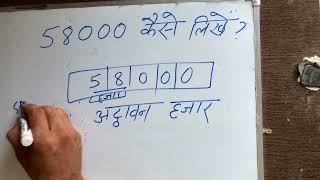 58000 कैसे लिखे ?
58000
हजार
अट्ठावन हजार